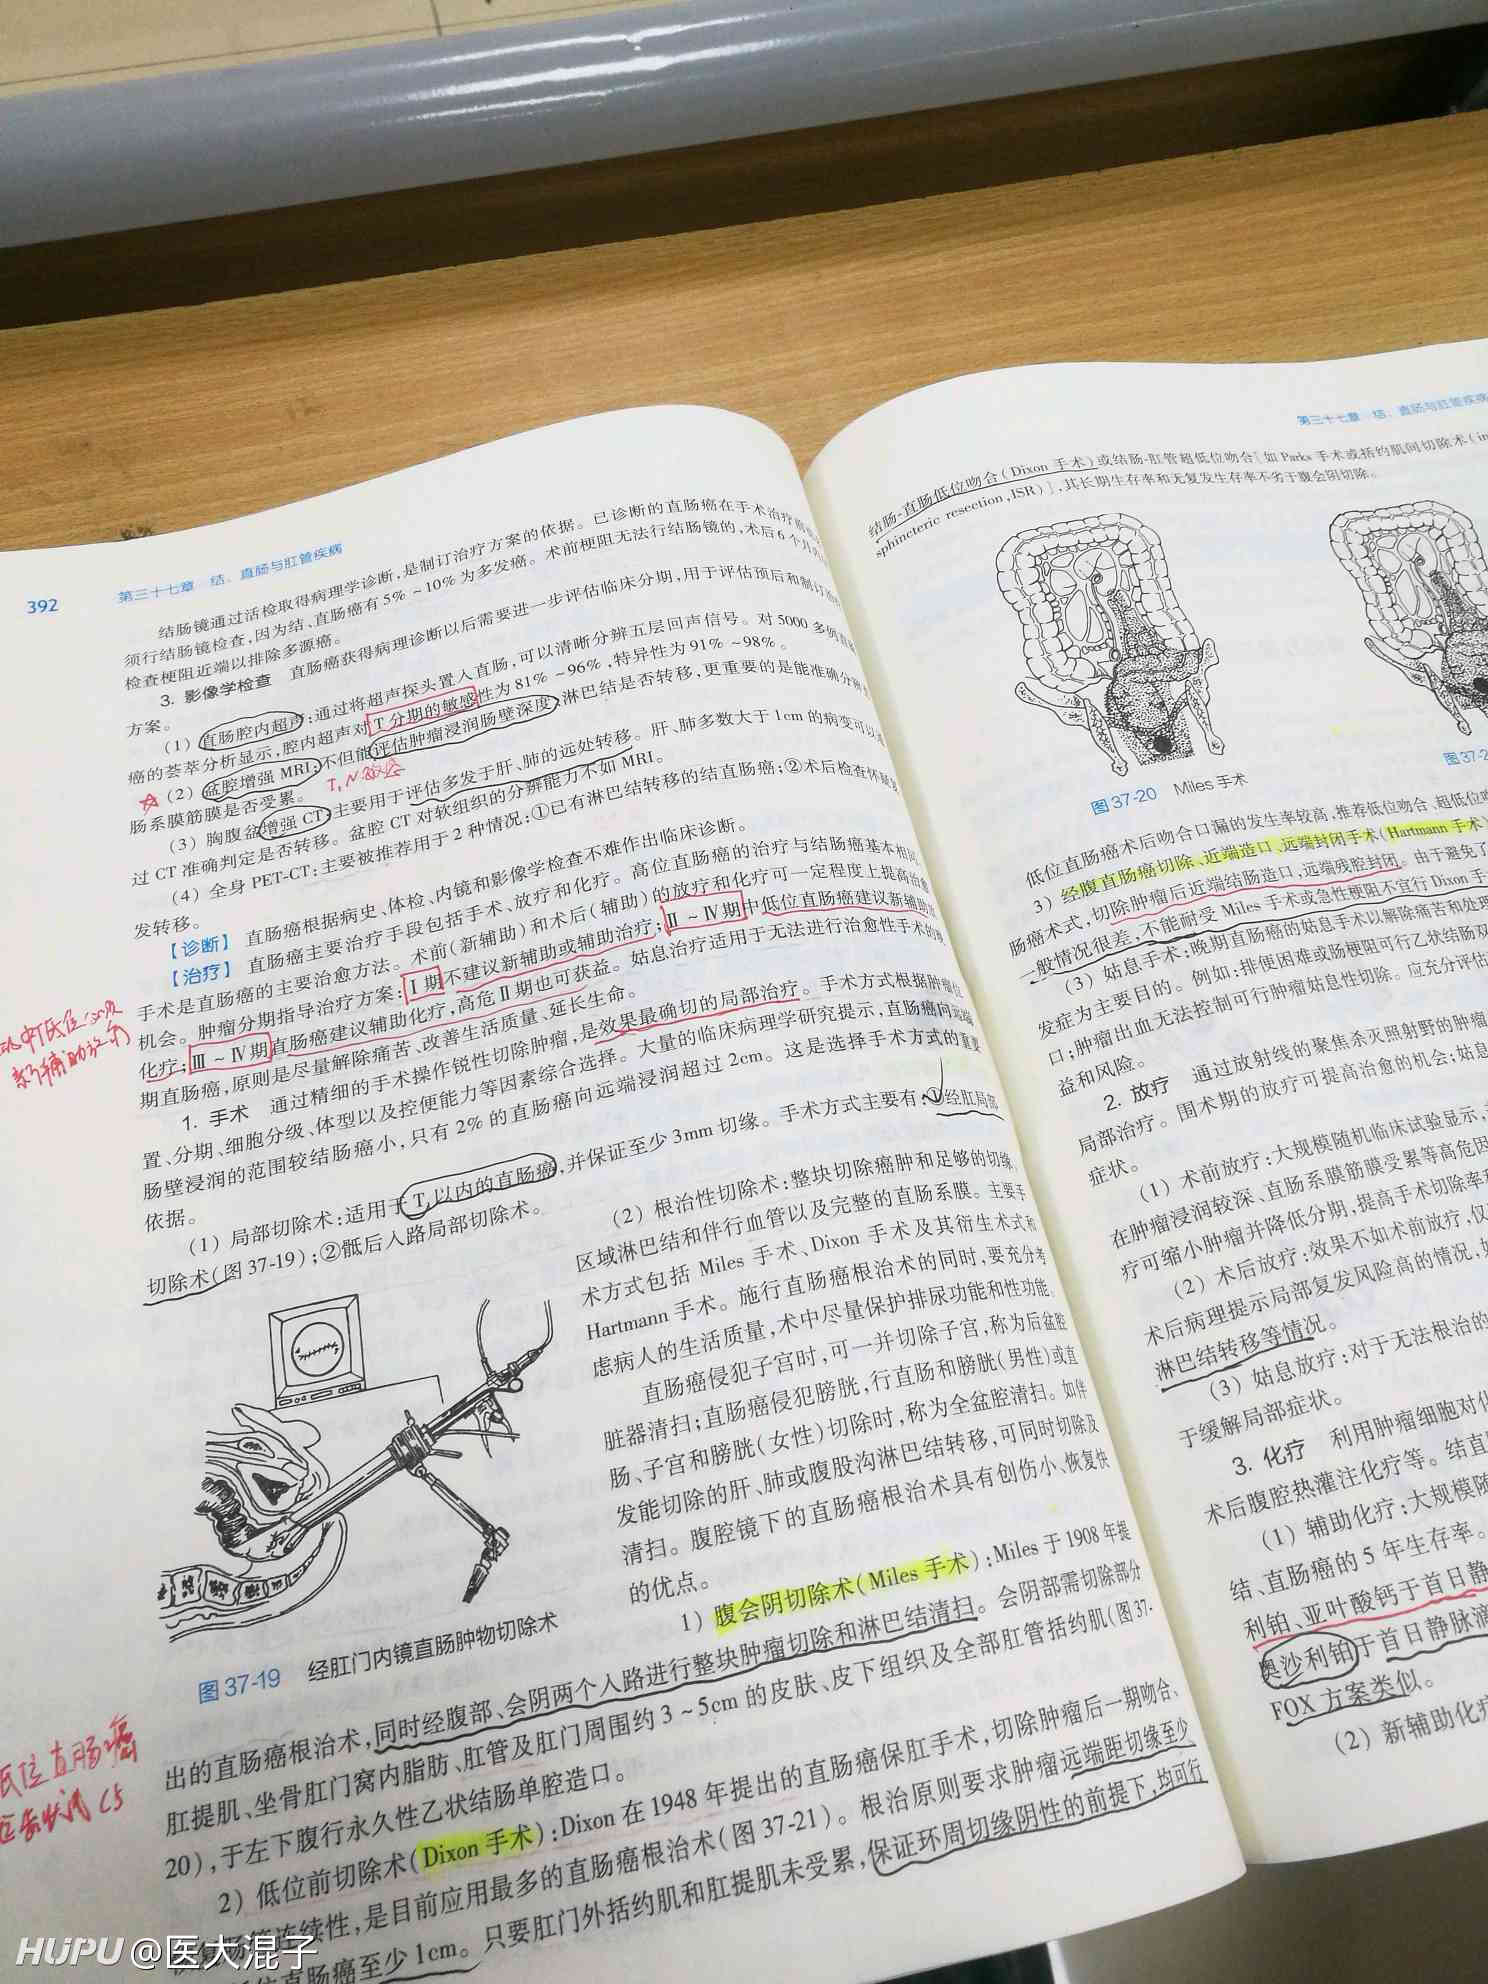 392
第三十七章 结、直肠与肛管疾病
结肠镜通过活检取得病理学诊断,是制订治疗方案的依据。已诊断的直肠癌在手术治疗前
须行结肠镜检查,因为结、直肠癌有5%~10%为多发癌。术前梗阻无法行结肠镜的,术后6个月内
检查梗阻近端以排除多源癌。
3. 影像学检查 直肠癌获得病理诊断以后需要进一步评估临床分期,用于评估预后和制订治疗
方案。
(1) 直肠腔内超声:通过将超声探头置入直肠,可以清晰分辨五层回声信号。对5000多例直肠
癌的荟萃分析显示,腔内超声对T分期的敏感性为81%~96%,特异性为91%~98%。
(2) 盆腔增强MRI:不但能评估肿瘤浸润肠壁深度、淋巴结是否转移,更重要的是能准确分辨直
肠系膜筋膜是否受累。
(3) 胸腹盆增强CT:主要用于评估多发于肝、肺的远处转移。肝、肺多数大于1cm的病变可以
过CT准确判定是否转移。盆腔CT对软组织的分辨能力不如MRI。
(4) 全身PET-CT:主要被推荐用于2种情况:①已有淋巴结转移的结直肠癌;②术后检查怀疑复
发转移。
【诊断】 直肠癌根据病史、体检、内镜和影像学检查不难作出临床诊断。
【治疗】 直肠癌主要治疗手段包括手术、放疗和化疗。高位直肠癌的治疗与结肠癌基本相同。
手术是直肠癌的主要治愈方法。术前(新辅助)和术后(辅助)的放疗和化疗可一定程度上提高治愈
机会。肿瘤分期指导治疗方案:Ⅰ期不建议新辅助或辅助治疗;Ⅱ~Ⅳ期中低位直肠癌建议新辅助放
化疗;Ⅲ~Ⅳ期直肠癌建议辅助化疗,高危Ⅱ期也可获益。姑息治疗适用于无法进行治愈性手术的晚
期直肠癌,原则是尽量解除痛苦、改善生活质量、延长生命。
1. 手术 通过精细的手术操作锐性切除肿瘤,是效果最确切的局部治疗。手术方式根据肿瘤位
置、分期、细胞分级、体型以及控便能力等因素综合选择。大量的临床病理学研究提示,直肠癌向远端
肠壁浸润的范围较结肠癌小,只有2%的直肠癌向远端浸润超过2cm。这是选择手术方式的重要
依据。
(1) 局部切除术:适用于T₁以内的直肠癌,并保证至少3mm切缘。手术方式主要有:①经肛局部
切除术(图37-19);②骶后入路局部切除术。
(2) 根治性切除术:整块切除癌肿和足够的切缘、
区域淋巴结和伴行血管以及完整的直肠系膜。主要手
术方式包括Miles手术、Dixon手术及其衍生术式和
Hartmann手术。施行直肠癌根治术的同时,要充分考
虑病人的生活质量,术中尽量保护排尿功能和性功能。
直肠癌侵犯子宫时,可一并切除子宫,称为后盆腔
脏器清扫;直肠癌侵犯膀胱,行直肠和膀胱(男性)或直
肠、子宫和膀胱(女性)切除时,称为全盆腔清扫。如伴
发能切除的肝、肺或腹股沟淋巴结转移,可同时切除及
清扫。腹腔镜下的直肠癌根治术具有创伤小、恢复快
的优点。
图37-19 经肛门内镜直肠肿物切除术
1) 腹会阴切除术(Miles手术):Miles于1908年提
出的直肠癌根治术,同时经腹部、会阴两个入路进行整块肿瘤切除和淋巴结清扫。会阴部需切除部分
肛提肌、坐骨肛门窝内脂肪、肛管及肛门周围约3~5cm的皮肤、皮下组织及全部肛管括约肌(图37-
20),于左下腹行永久性乙状结肠单腔造口。
2) 低位前切除术(Dixon手术):Dixon在1948年提出的直肠癌保肛手术,切除肿瘤后一期吻合、
恢复肠管连续性,是目前应用最多的直肠癌根治术(图37-21)。根治原则要求肿瘤远端距切缘至少
低位直肠癌至少1cm。只要肛门外括约肌和肛提肌未受累,保证环周切缘阴性的前提下,均可行
低位直肠癌
第三十七章 结、直肠与肛管疾病
结肠-直肠低位吻合(Dixon手术)或结肠-肛管超低位吻合[如Parks手术或括约肌间切除术(in
sphincteric resection,ISR)],其长期生存率和无复发生存率不劣于腹会阴切除。
图37-20 Miles手术
图37-2
低位直肠癌术后吻合口漏的发生率较高,推荐低位吻合、超低位吻
3) 经腹直肠癌切除、近端造口、远端封闭手术(Hartmann手术)
肠癌术式,切除肿瘤后近端结肠造口,远端残腔封闭。由于避免了
一般情况很差,不能耐受Miles手术或急性梗阻不宜行Dixon手
(3) 姑息手术:晚期直肠癌的姑息手术以解除痛苦和处理
发症为主要目的。例如:排便困难或肠梗阻可行乙状结肠双
口;肿瘤出血无法控制可行肿瘤姑息性切除。应充分评估
益和风险。
2. 放疗 通过放射线的聚焦杀灭照射野的肿瘤
局部治疗。围术期的放疗可提高治愈的机会;姑息
症状。
(1) 术前放疗:大规模随机临床试验显示,
在肿瘤浸润较深、直肠系膜筋膜受累等高危因
疗可缩小肿瘤并降低分期,提高手术切除率和
(2) 术后放疗:效果不如术前放疗,仅
术后病理提示局部复发风险高的情况,如
淋巴结转移等情况。
(3) 姑息放疗:对于无法根治的
于缓解局部症状。
3. 化疗 利用肿瘤细胞对化
术后腹腔热灌注化疗等。结直
(1) 辅助化疗:大规模随
结、直肠癌的5年生存率。
利铂、亚叶酸钙于首日静
奥沙利铂于首日静脉滴
FOX方案类似。
(2) 新辅助化疗
HUPU @医大混子